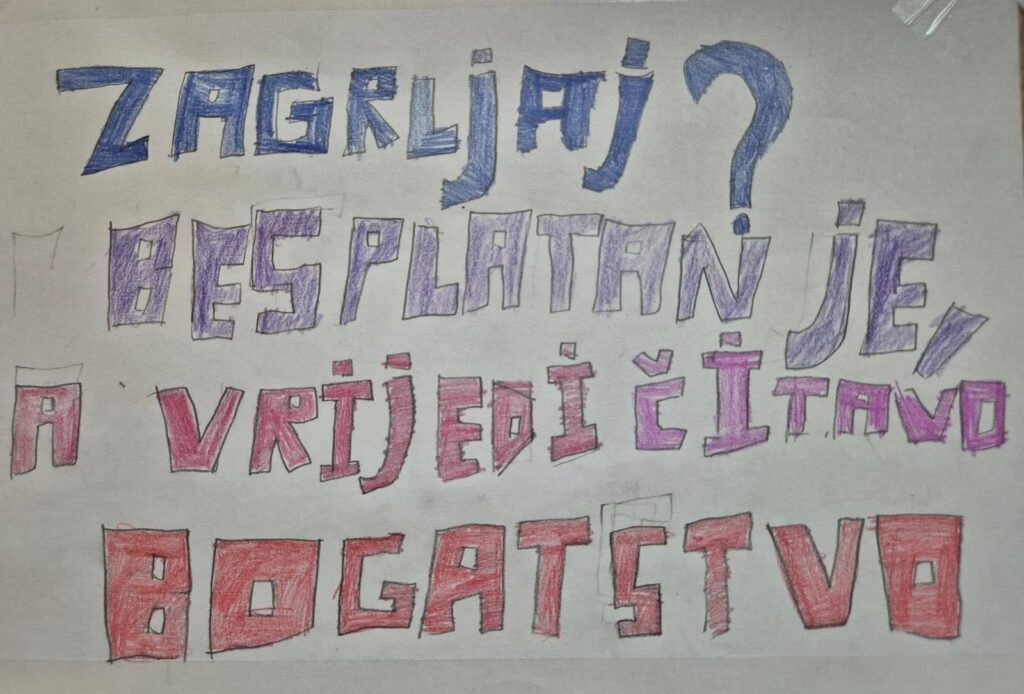 ZAGRLjAj?
BESPLATAN JE,
A VRIJEDI ČITAVO
BOGATSTVO